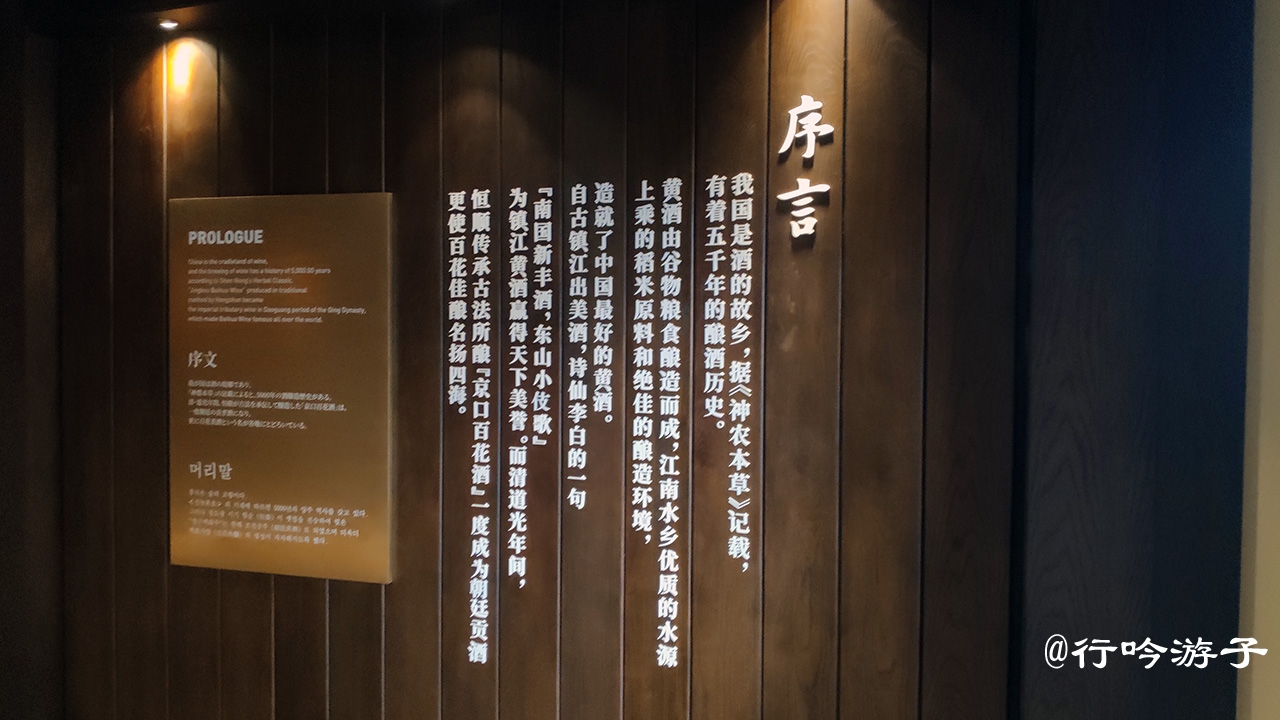 序言
我国是酒的故乡，据《神农本草》记载，
有着五千年的酿酒历史。
黄酒由谷物粮食酿造而成，江南水乡优质的水源
上乘的稻米原料和绝佳的酿造环境，
造就了中国最好的黄酒。
自古镇江出美酒，诗仙李白的一句
『南国新丰酒，东山小伎歌』
为镇江黄酒赢得天下美誉。而清道光年间，
恒顺传承古法所酿『京口百花酒』一度成为朝廷贡酒
更使百花佳酿名扬四海。
PROLOGUE
China is the cradleland of wine,
and the brewing of wine has a history of 5,000.00 years
according to Shen Nong's Herbal Classic.
"Jingkou Baihua Wine" produced in traditional
method by Hengshun became
the imperial tributary wine in Daoguang period of the Qing Dynasty,
which made Baihua Wine famous all over the world.
序文
我が国は酒の故郷であり、
「神農本草」の記載によると、5000年の酒醸造歴史がある。
머리말
@行吟游子